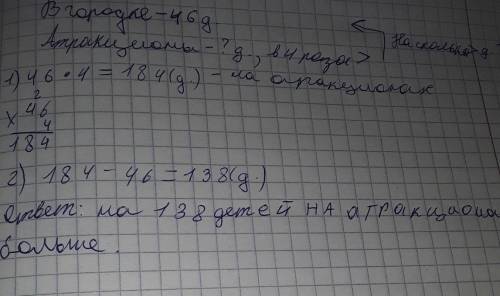 В городке - 46 д.
Атракционы - ? д., в 4 раза > На сколько д
1) 46 · 4 = 184 (д.) - на атракционах
2
× 46
4
184
2) 184 - 46 = 138 (д.)
Ответ: на 138 детей НА атракциона
больше.